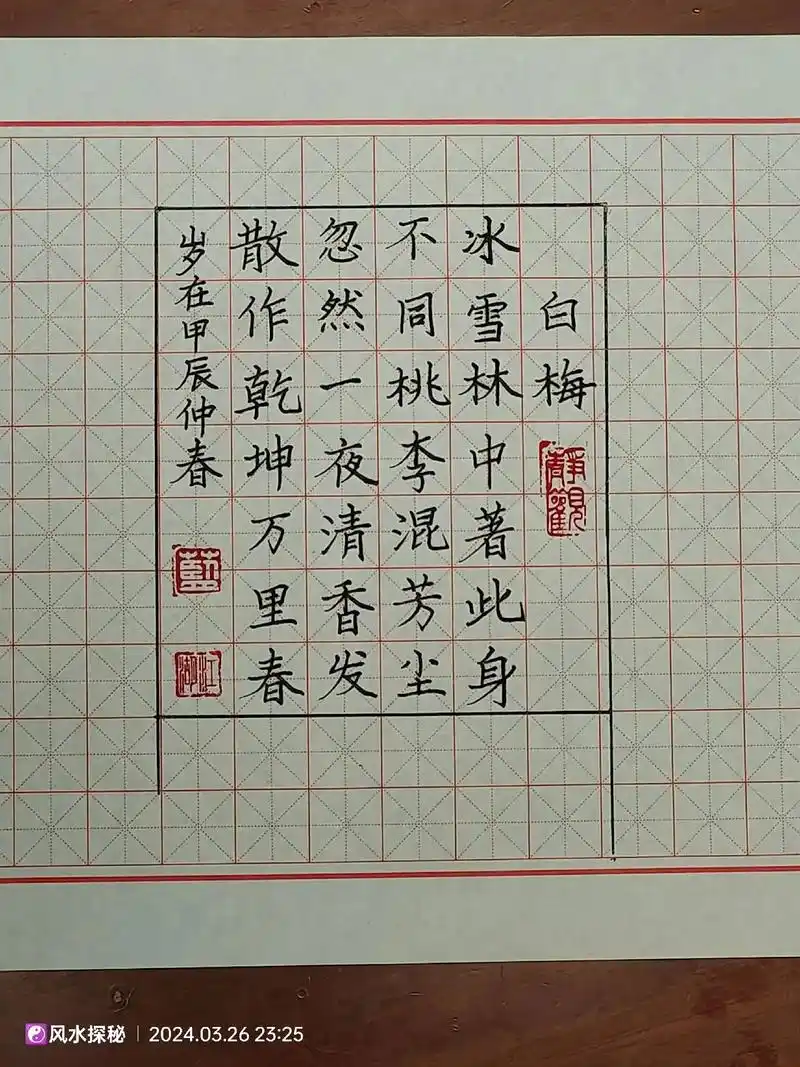 白梅
静观
冰雪林中著此身
不同桃李混芳尘
忽然一夜清香发
散作乾坤万里春
岁在甲辰仲春
风水探秘 2024.03.26 23:25